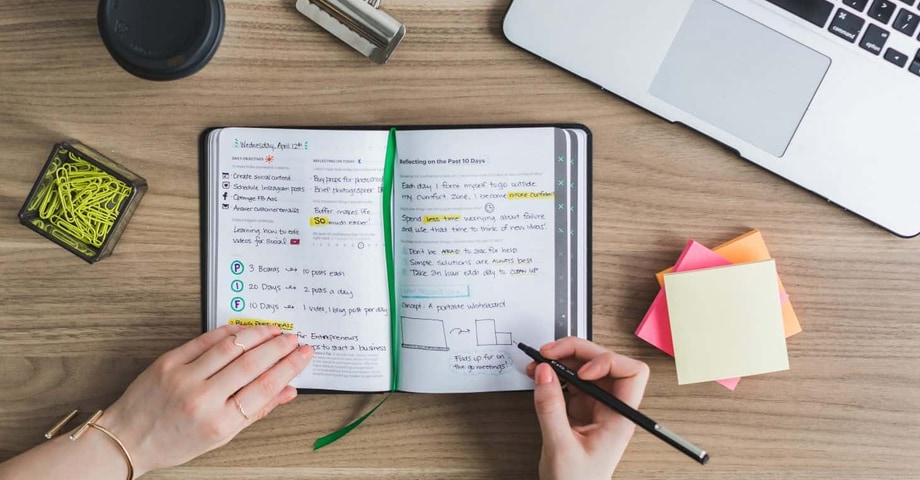 Wednesday, April 12th
DAILY OBJECTIVES
Create social content
Schedule Instagram posts
Optimize FB Ads
Answer customer emails
Learning how to edit
videos for Social!
P 3 Boards 10 posts each
I 20 Days 2 posts a day
F 10 Days 1 video, 1 blog post per day
Blog Post Ideas
for Entrepreneurs
to start a business
REFLECTING ON TODAY
Buy props for
Brief photographer
Buffer makes life
So much easier!
Reflecting on the Past 10 Days
Each day I force myself to go outside
my comfort zone, I become more confident
Spend less time worrying about failure
and use that time to think of new ideas!
Don't be AFRAID to ask for help
Simple solutions are ALWAYS best
Take an hour each day to CLEAN UP
Concept: A portable whiteboard
Folds up for on
the go meetings!
command
option